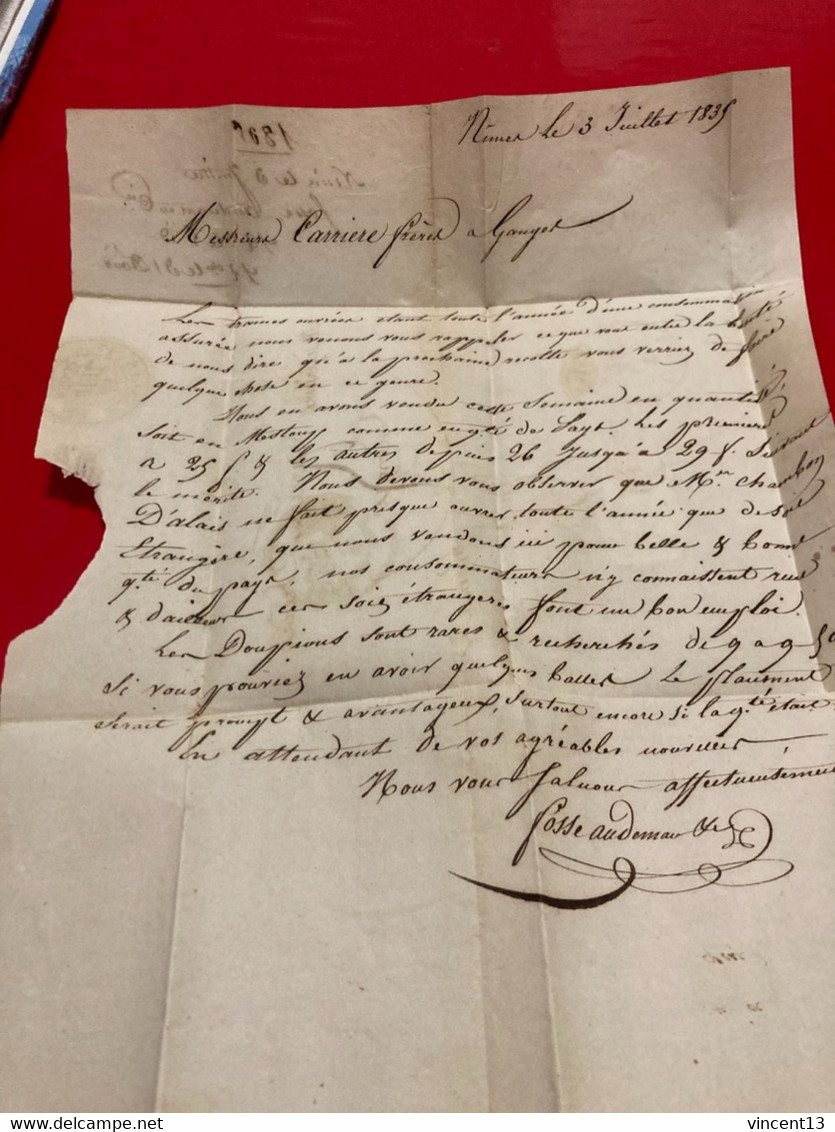 Nimes Le 3 Juillet 1835
Messieurs Carriere frères a Ganges
Les trames ouvrées etant toute l'année d'une consommation
assurée nous venons vous rappeler ce que vous eutes la bonté
de nous dire qu'à la prochaine recolte vous verriez de faire
quelque chose en ce genre.
Nous en avons vendu cette Semaine en quantité
soit en comme en qté de Pays. Les premieres
a 25 f & les autres depuis 26 jusqu'a 29 f. Suivant
le mérite. Nous devons vous observer que Mr. Chambon
D'alais ne fait presque ouvrer toute l'année que de soie
Etrangère, que nous vendons ici pour belle & bonne
qté du pays, nos consommateurs n'y connaissent rien
& d'ailleurs ces soies étrangeres font un bon emploi.
Les Doupions sont rares & recherchés de 9 a 9 50
Si vous pouviez en avoir quelques balles le placement
serait prompt & avantageux, surtout encore si la qté était
En attendant de vos agréables nouvelles
Nous vous saluons affectueusement
Fosse audemar &
vincent13